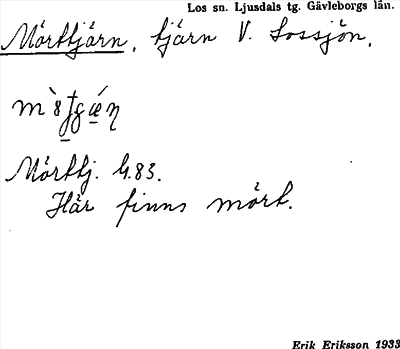 Los sn. Ljusdals tg. Gävleborgs län.
Mörttjärn, tjärn V. Lossjön.
Mörttj. G.83.
Här finns mört.
Erik Eriksson 1933